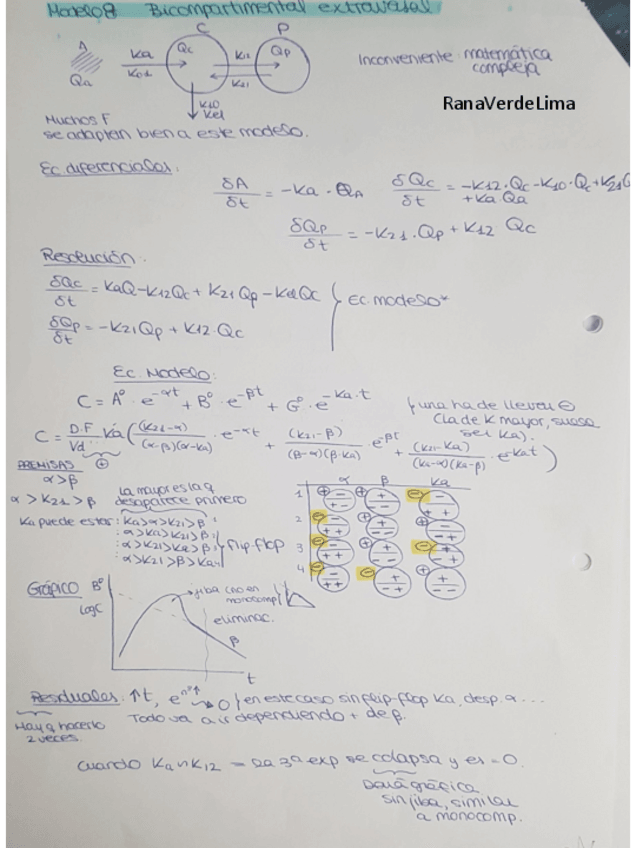 Modelo 8 Bicompartimental extravasal
A C P
Ka Qc K12 Qp
Qa K01 K21
K10
Kel
Inconveniente matemática
compleja
RanaVerdeLima
Muchos F
se adaptan bien a este modelo.
Ec. diferenciales:
δA/δt = -Ka · QA δQc/δt = -K12·Qc-K10·Qc+K21Q
+Ka Qa
δQp/δt = -K21·Qp + K12 Qc
Resolución:
δQc/δt = KaQ-K12Qc + K21Qp-KelQc } Ec. modelo*
δQp/δt = -K21Qp + K12·Qc
Ec Modelo:
C = A°·e^-αt + B°·e^-βt + G°·e^-Ka·t
C = D.F/Vd · Ka ((K21-α)/(α-β)(α-Ka) · e^-αt + (K21-β)/(β-α)(β-Ka) · e^-βt + (K21-Ka)/(Ka-α)(Ka-β) · e^-Kat)
(una ha de llevar ⊖
Cla de K mayor,
ser Ka).
PREMISAS
α>β
α > K21 > β
La mayor es la q
desaparece primero
Ka puede estar: Ka>α>K21>β
α>Ka>K21>β
α>K21>Ka>β
α>K21>β>Ka
flip-flop
α β Ka
1 ⊕ - - + - ⊕ + - + - ⊖ - + +
2 ⊖ - - + + ⊕ + - - ⊕ + - -
3 ⊖ - - + + ⊕ + - - ⊖ - + +
4 ⊖ - - + + ⊖ + - - ⊕ + - -
Gráfico B°
LogC
jiba (no en
monocomp)
eliminac.
β
t
Residuales: ↑t, e^n°↑ → 0 / en este caso sin flip-flop Ka, desp. α ...
Hay q hacerlo
2 veces.
Todo va a ir dependiendo + de β.
Cuando Ka ∩ K12 = 2a 3ª exp se colapsa y es = 0.
Dará gráfica
sin jiba, similar
a monocomp.